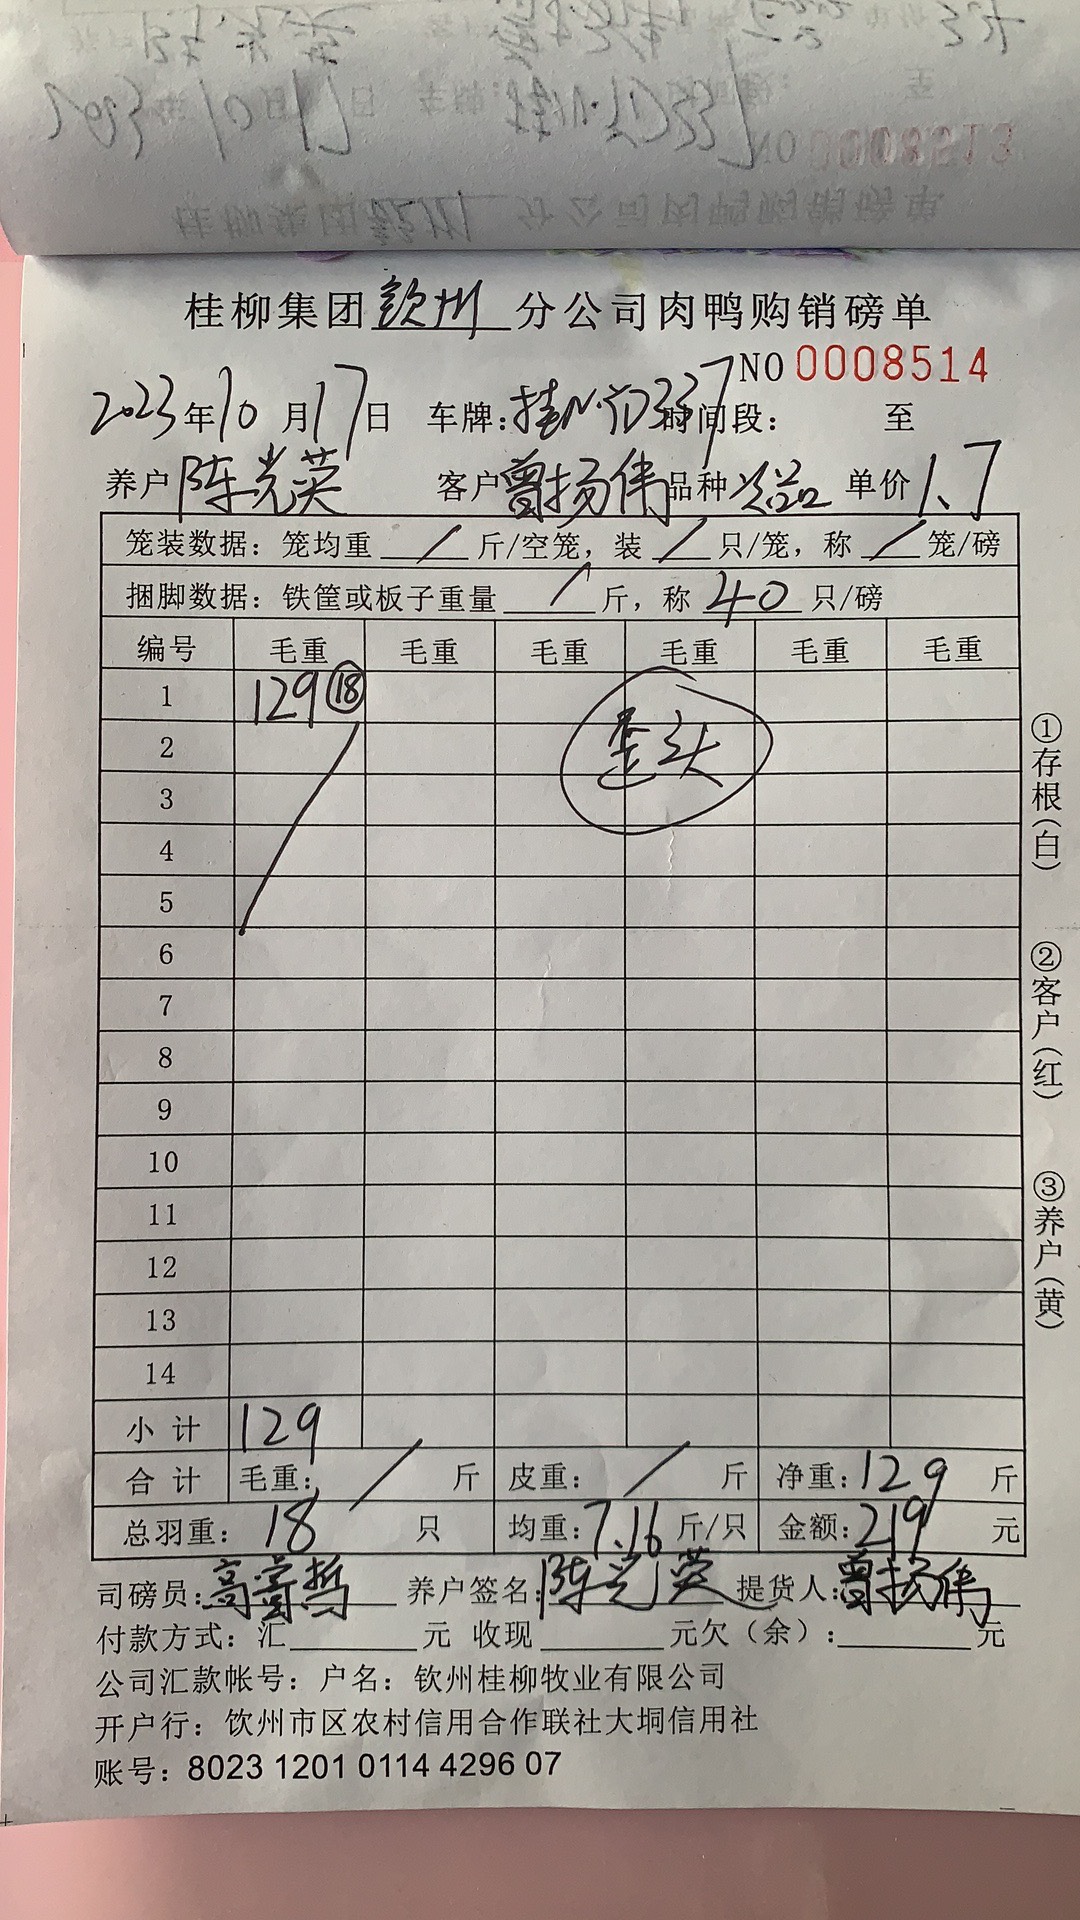 桂柳集团钦州分公司肉鸭购销磅单
NO 0008514
2023年10月17日 车牌: 时间段: 至
养户陈光英 客户曾扬伟 品种次品 单价1.7
笼装数据：笼均重 / 斤/空笼，装 / 只/笼，称 / 笼/磅
捆脚数据：铁筐或板子重量 / 斤，称 40 只/磅
编号 毛重 毛重 毛重 毛重 毛重 毛重
1 129 ⑱
歪头
2
3
4
5
6
7
8
9
10
11
12
13
14
小计 129
合计 毛重: / 斤 皮重: / 斤 净重: 129 斤
总羽重: 18 只 均重: 7.16 斤/只 金额: 219 元
司磅员: 养户签名:陈光英 提货人:曾扬伟
付款方式：汇 元 收现 元欠（余）: 元
公司汇款帐号：户名：钦州桂柳牧业有限公司
开户行：饮州市区农村信用合作联社大垌信用社
账号：8023 1201 0114 4296 07
①存根(白)
②客户(红)
③养户(黄)